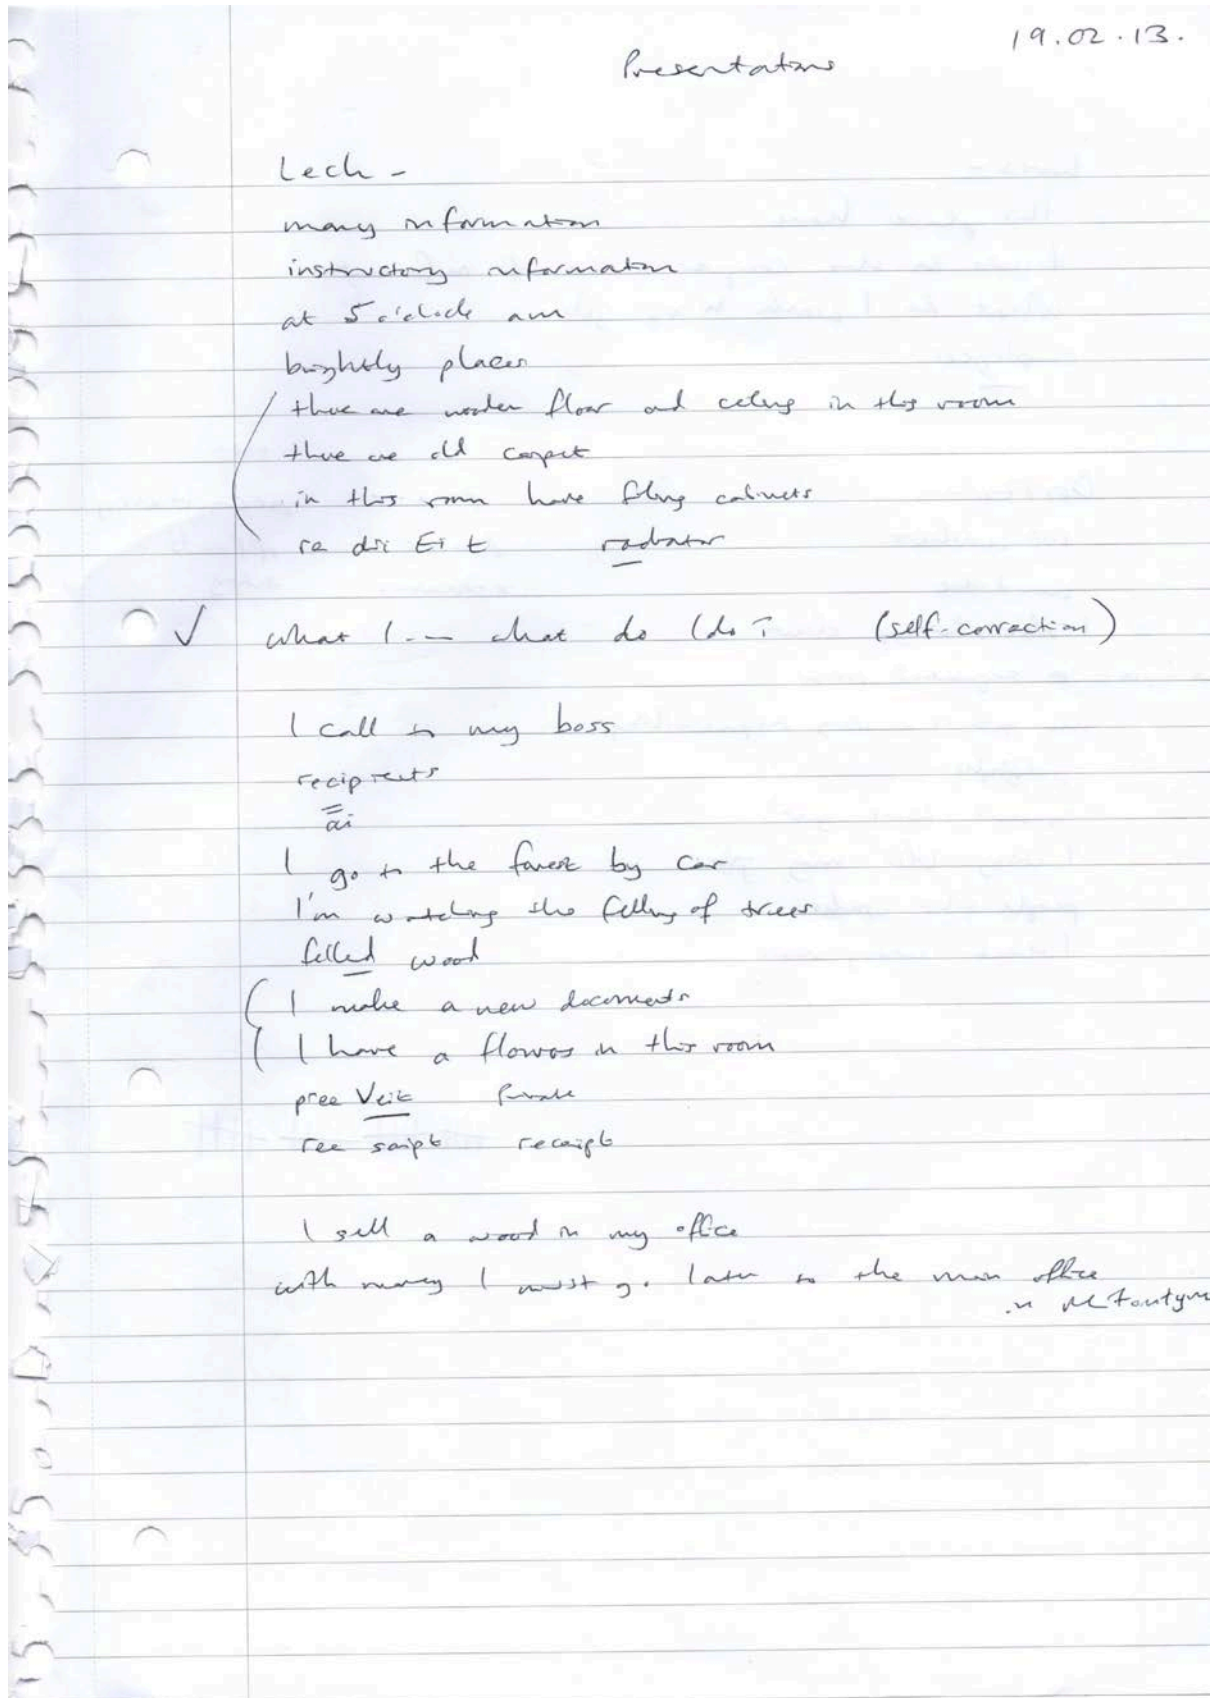 19.02.13.
Presentations
Lech -
many information
instructory information
at 5 o'clock am
brightly places
there are wooden floor and ceiling in this room
there are old carpet
in this room have filing cabinets
re dri Ei t radiator
what I -- what do I do? (self-correction)
I call to my boss
recipients
ai
I go to the forest by car
I'm watching the felling of trees
felled wood
I make a new documents
I have a flowers in this room
pree Veit Private
ree saipt receipt
I sell a wood in my office
with money I must go later to the main office
in